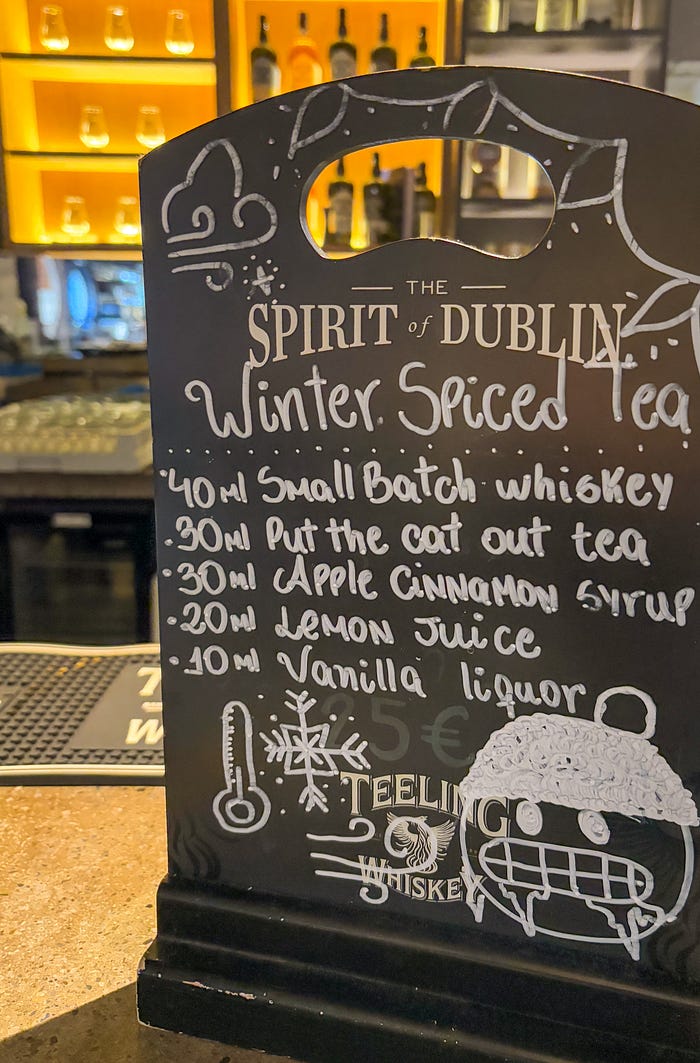 THE
SPIRIT of DUBLIN
Winter Spiced Tea
·40ml Small Batch whiskey
·30ml Put the cat out tea
·30ml Apple Cinnamon Syrup
·20ml Lemon Juice
·10ml Vanilla liquor
25€
TEELING
WHISKEY